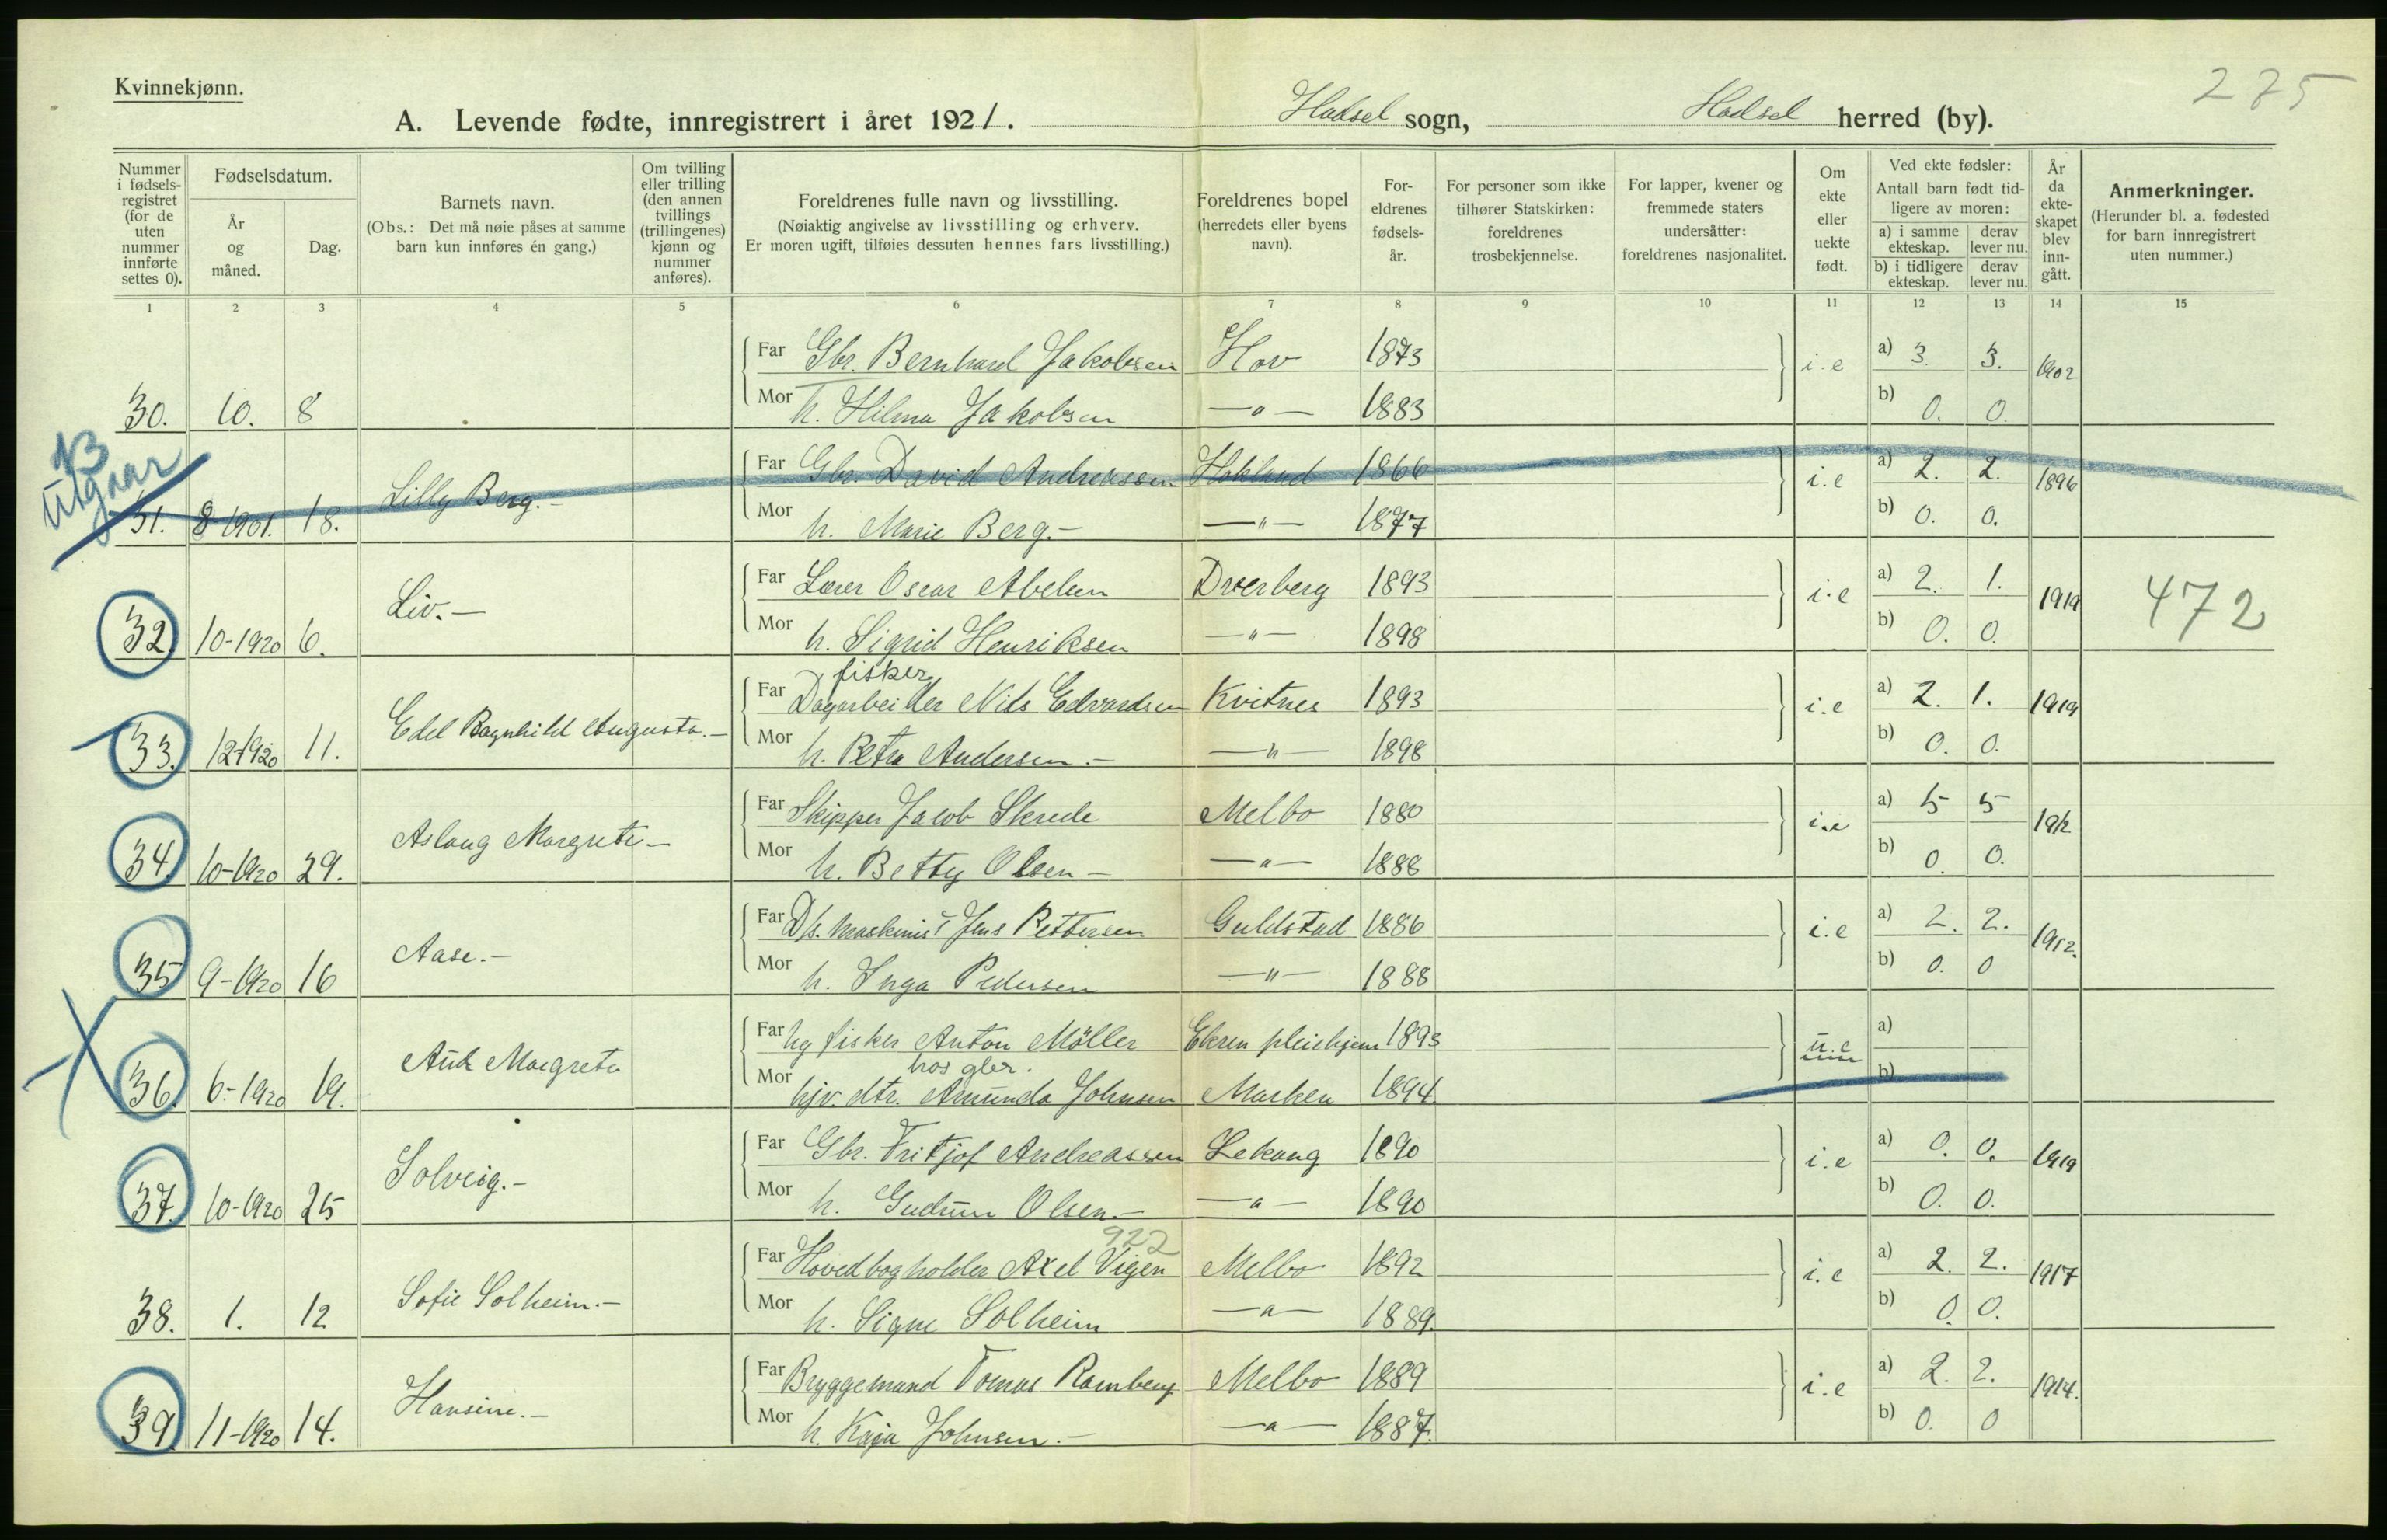 Kvinnekjønn.
275
A. Levende fødte, innregistrert i året 1921. Hadsel sogn, Hadsel herred (by).
Nummer i fødselsregistret (for de uten nummer innførte settes 0).
Fødselsdatum.
År og måned.
Dag.
Barnets navn.
(Obs.: Det må nøie påses at samme barn kun innføres én gang.)
Om tvilling eller trilling (den annen tvillings (trillingenes) kjønn og nummer anføres).
Foreldrenes fulle navn og livsstilling.
(Nøiaktig angivelse av livsstilling og erhverv.
Er moren ugift, tilføies dessuten hennes fars livsstilling.)
Foreldrenes bopel (herredets eller byens navn).
Foreldrenes fødselsår.
For personer som ikke tilhører Statskirken: foreldrenes trosbekjennelse.
For lapper, kvener og fremmede staters undersåtter: foreldrenes nasjonalitet.
Om ekte eller uekte født.
Ved ekte fødsler:
Antall barn født tidligere av moren:
a) i samme ekteskap. derav lever nu.
b) i tidligere ekteskap. derav lever nu.
År da ekteskapet blev inngått.
Anmerkninger.
(Herunder bl. a. fødested for barn innregistrert uten nummer.)
1 2 3 4 5 6 7 8 9 10 11 12 13 14 15
Far Gbr. Bernhard Jakobsen Hov 1873 i.e a) 3. 3. 1902
30. 10. 8 Mor h. Hilma Jakobsen —"— 1883 b) 0. 0.
Utgaar
Lilly Berg.— Far Gbr. David Andreassen Hokland 1866 i.e a) 2. 2. 1896
31. 8-1901. 18. Mor h. Marie Berg.— —"— 1877 b) 0. 0.
Liv.— Far Lærer Oscar Abelsen Dverberg 1893 i.e a) 2. 1. 1919 472
32. 10-1920 6. Mor h. Sigrid Henriksen —"— 1898 b) 0. 0.
fisker
Edel Ragnhild Augusta.— Far Dagarbeider Nils Edvardsen Kvitnes 1893 i.e a) 2. 1. 1919
33. 12-1920 11. Mor h. Petra Andersen.— —"— 1898 b) 0. 0.
Aslaug Margrete— Far Skipper Jacob Skrede Melbo 1880 i.e a) 5 5 1912
34. 10-1920 29. Mor h. Betty Olsen— —"— 1888 b) 0. 0.
Aase.— Far D/s. maskinist Jens Pettersen Guldstad 1886 i.e a) 2. 2. 1912.
35 9-1920 16 Mor h. Inga Pedersen —"— 1888 b) 0. 0
Aud Margrete Far ug fisker Anton Möller Ekren pleiehjem 1893 u.e a)
hos gbr.
36. 6-1920 19. Mor hjv. dtr. Amunda Johnsen Marken 1894. b)
Solveig.— Far Gbr. Fritjof Andreassen Lekang 1890 i.e a) 0. 0. 1919
37. 10-1920 25 Mor h. Gudrun Olsen.— —"— 1890 b) 0. 0.
922
Sofie Solheim.— Far Hovedbogholder Axel Vigen Melbo 1892 i.e a) 2. 2. 1917
38. 1. 12 Mor h. Signe Solheim —"— 1889. b) 0. 0.
Hansine.— Far Bryggemand Tomas Ramberg Melbo 1889 i.e a) 2. 2. 1914.
39. 11-1920 14. Mor h. Kaja Johnsen.— —"— 1887. b) 0. 0